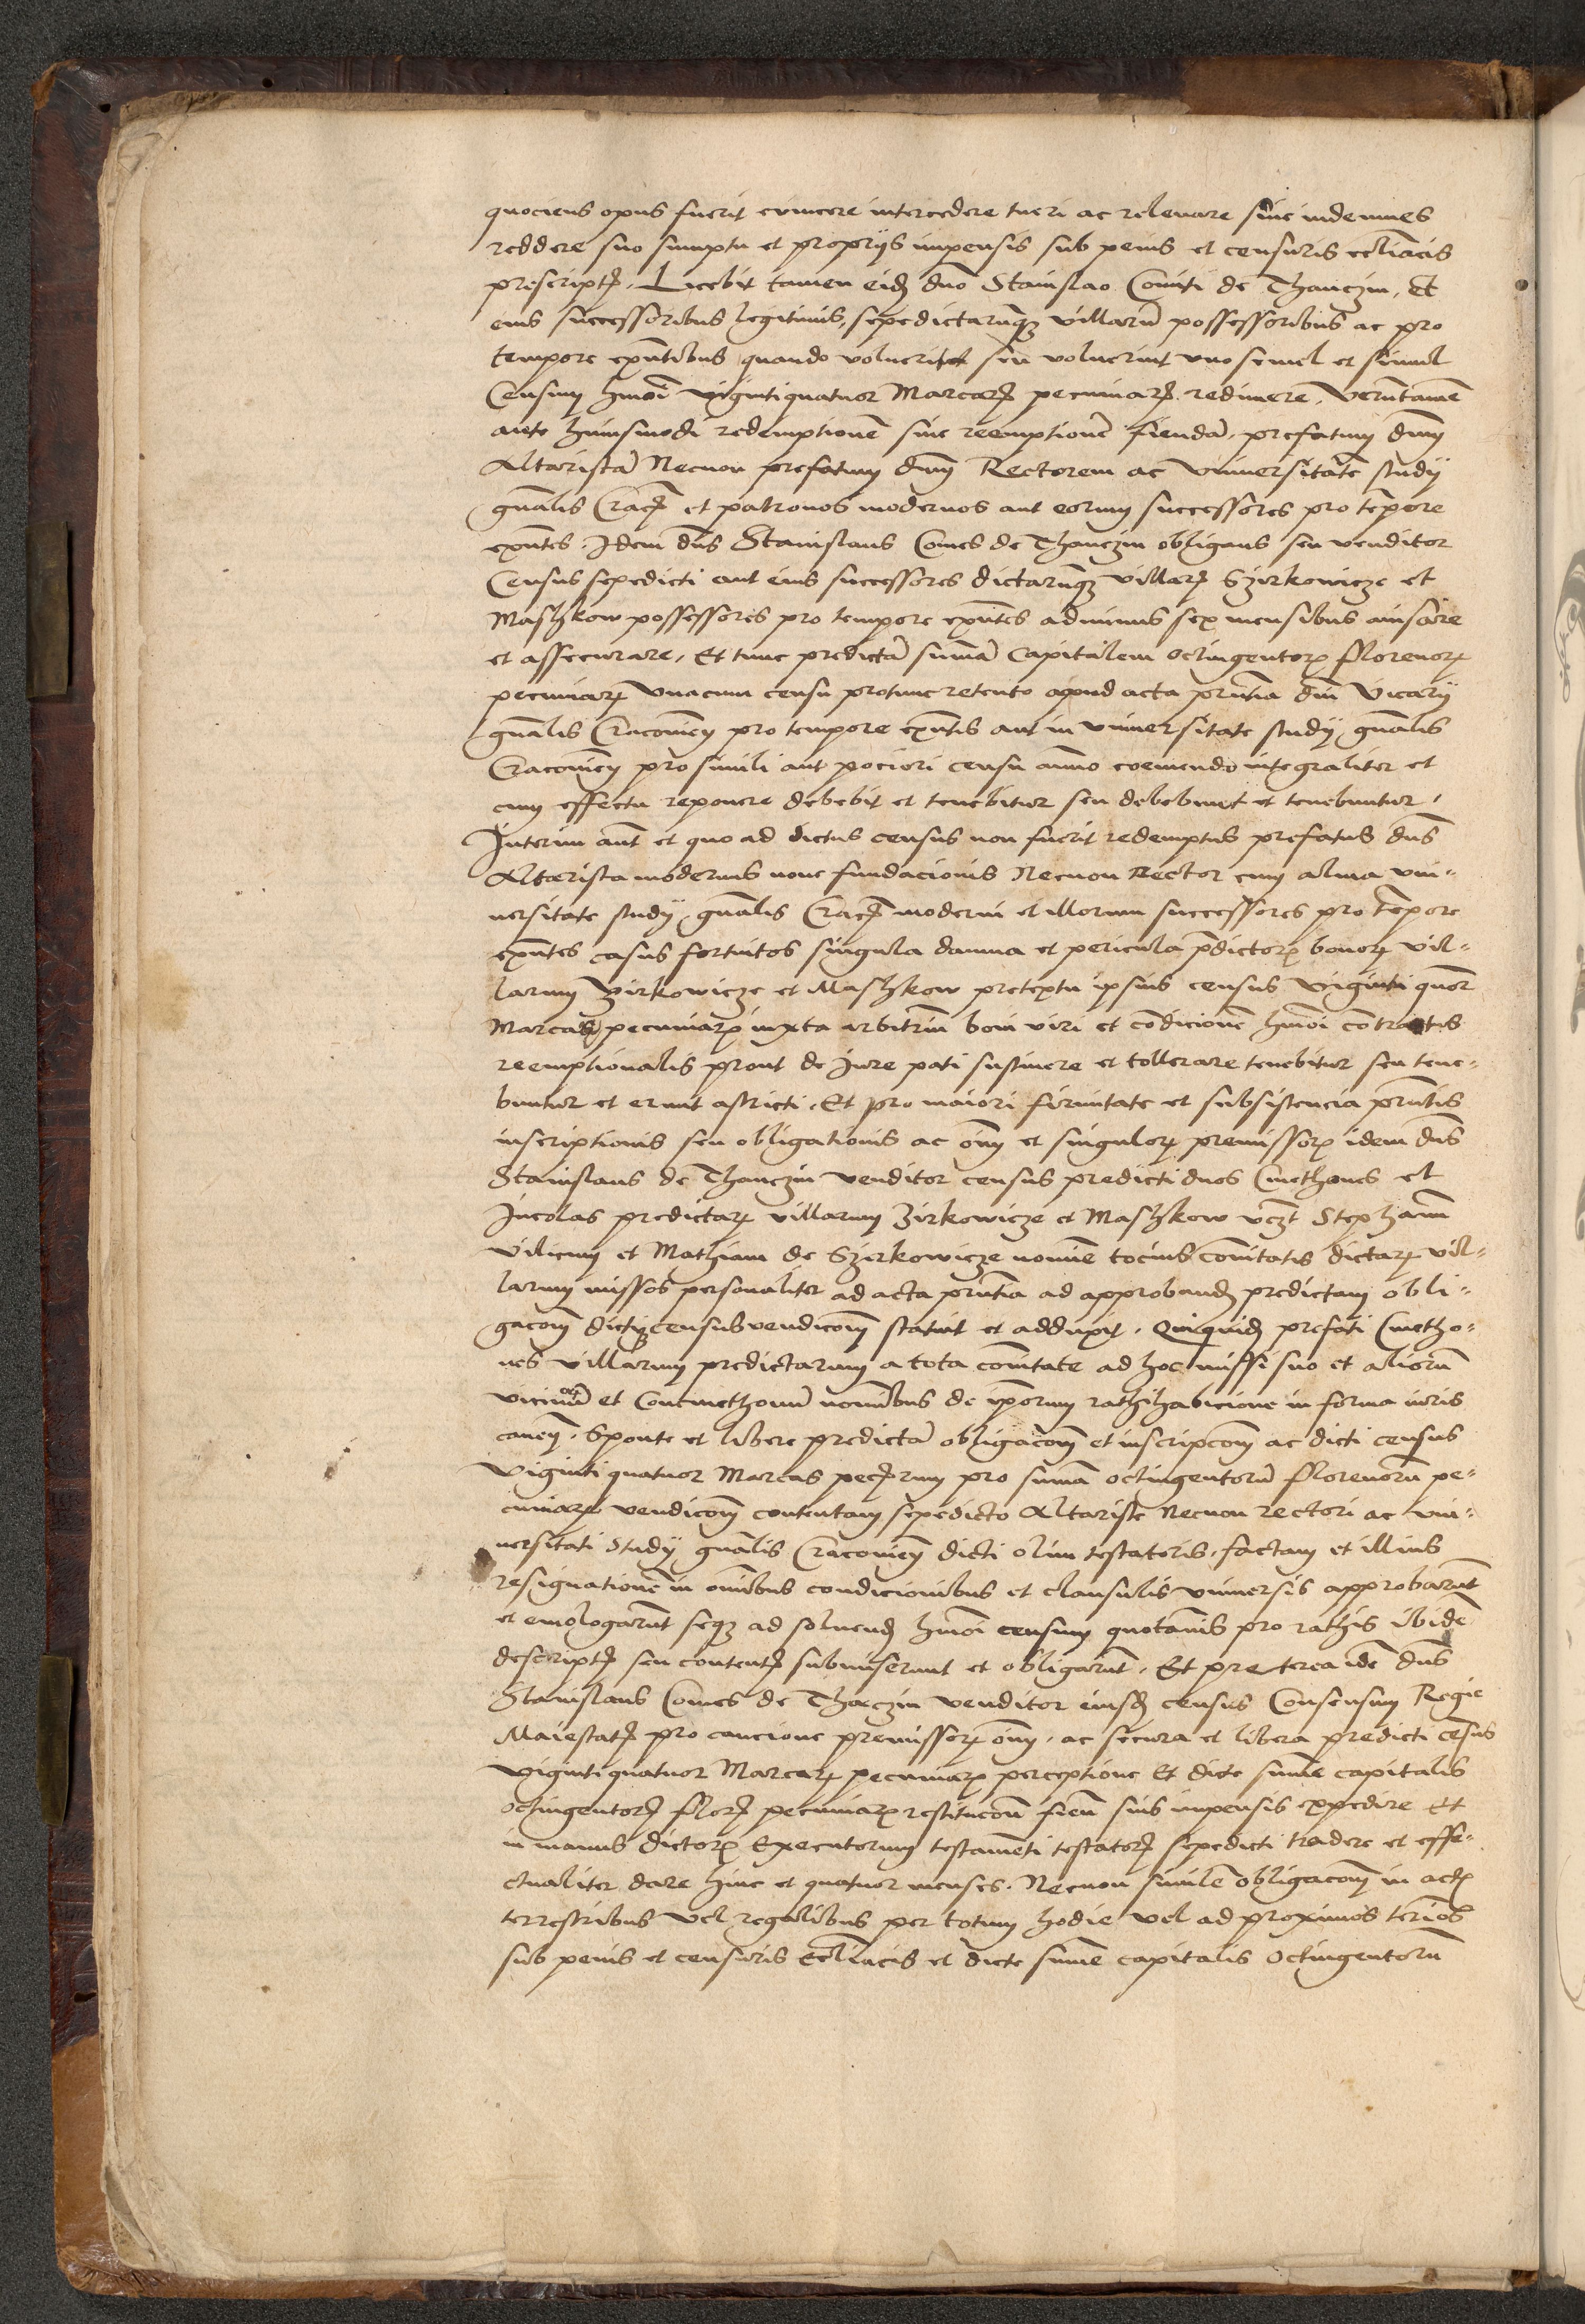 quociens opus fuerit evincere intercedere tueri ac relevare sive indemnes
reddere suo sumptu et proprijs impensis sub penis et censuris ecclīacis
prescriptꝭ. Licebit tamen eidꝫ dn̄o Stanislao Comiti de Thanczin, Et
eius successoribus legitimis, sepedictarumqꝫ villarū possessoribus ac pro
tempore exn̄tibus quando voluerit seu voluerint uno semel et simul
Censum hm̄oi vigintiquatuor Marcarꝫ pecuniarꝫ redimere. Verūtamen
ante huiusmodi redemptionē sive reemptionē fiendā, prefatum dnm̄
Altaristā Necnon prefatum dnm̄ Rectorem ac Universitatē studij
gn̄alis Cracꝫ et patronos modernos aut eorum successores pro tēpore
exn̄tes. Idem dn̄s Stanislaus Comes de Thanczin obligans seu venditor
Census sepedicti aut eius successores dictarumqꝫ villarꝫ Szirkowicze et
Mashkow possessores pro tempore exn̄tes adminus sex mensibus avisare
et assecurare, Et tunc predictā summā Capitalem octingentorꝝ florenorꝝ
pecuniarꝝ unacum censu protunc retento apud acta prn̄tia dnī Vicarij
gn̄alis Cracovieñ pro tempore exn̄tis aut in universitate studij gn̄alis
Cracovieñ pro simili aut pociori censu anno coemendo integraliter et
cum effectu reponere debebit et tenebitur seu debebunt et tenebuntur.
Interim aūt et quo ad dictus census non fuerit redemptus prefatus dn̄s
Altarista modernus nove fundacionis Necnon Rector cum alma uni-
versitate studij gn̄alis Cracꝫ moderni et illorum successores pro tēpore
exn̄tes casus fortuitos singula damna et pericula p̄dictorꝝ bonorꝝ vil-
larum Zirkowicze et Mashkow pretextu ipsius census Viginti quor̄
Marcarꝫ pecuniarꝝ iuxta arbitriū boni viri et condicionē hm̄oi contractus
reemptionalis prout de iure pati sustinere et tollerare tenebitur seu tene-
buntur et erunt astricti. Et pro maiori firmitate et subsistencia prn̄tis
inscriptionis seu obligationis ac om̄ et singulorꝝ premissorꝝ idem dn̄s
Stanislaus de Thanczin venditor census predicti duos Cmethones et
Incolas predictarꝝ villarum Zirkowicze et Mashkow vcꝫt Stephanū
Vilicum et Mathiam de Szirkowicze nomine tocius com̄itatis dictarꝝ vil-
larum missos personaliter ad acta prn̄tia ad approbandꝫ predictam obli-
gacom̄ dictiqꝫ census vendicom̄ statuit et adduxit. Quiquidꝫ prefati Cmetho-
nes Villarum predictarum a tota com̄itate ad hoc missi suo et aliorū
vicinorū et Concmethonū nominibus de ip̄orum rathihabicione in forma iuris
caven̄. Sponte et libere predictā obligacom̄ et inscripcom̄ ac dicti census
Viginti quatuor Marcas pecꝫrum pro summa octingentorū florenorū pe-
cuniarꝝ vendicom̄ contentam sepedicto Altariste Necnon rectori ac uni-
versitati Studij gn̄alis Cracovieñ dicti olim testatoris, factam et illius
resignationē in om̄ibus condicionibus et clausulis universis approbarūt
et emologarūt seqꝫ ad solvendꝫ hm̄oi censum quotānis pro rathis ibidē
descriptꝭ seu contentꝭ submiserunt et obligarūt. Et preterea idē dn̄s
Stanislaus Comes de Thaczin venditor eiusdꝫ census Consensum Regie
Maiestatꝭ pro caucione premissorꝝ om̄, ac secura et libera predicti cēsus
viginti quatuor Marcarꝝ pecuniarꝝ perceptione Et dicte summe capitalis
octingentorꝫ florꝫ pecuniarꝝ restitucom̄ fien̄ suis impensis expedire Et
in manus dictorꝝ Executorum testamēti testatorꝭ sepedicti tradere et effe-
ctualiter dare hinc et quatuor menses. Necnon similē obligacom̄ in actꝭ
terrestribus vel regalibus per totum hodie vel ad proximos term̄os
sub penis et censuris Ecclīacis et dicte summe capitalis Octingentorū